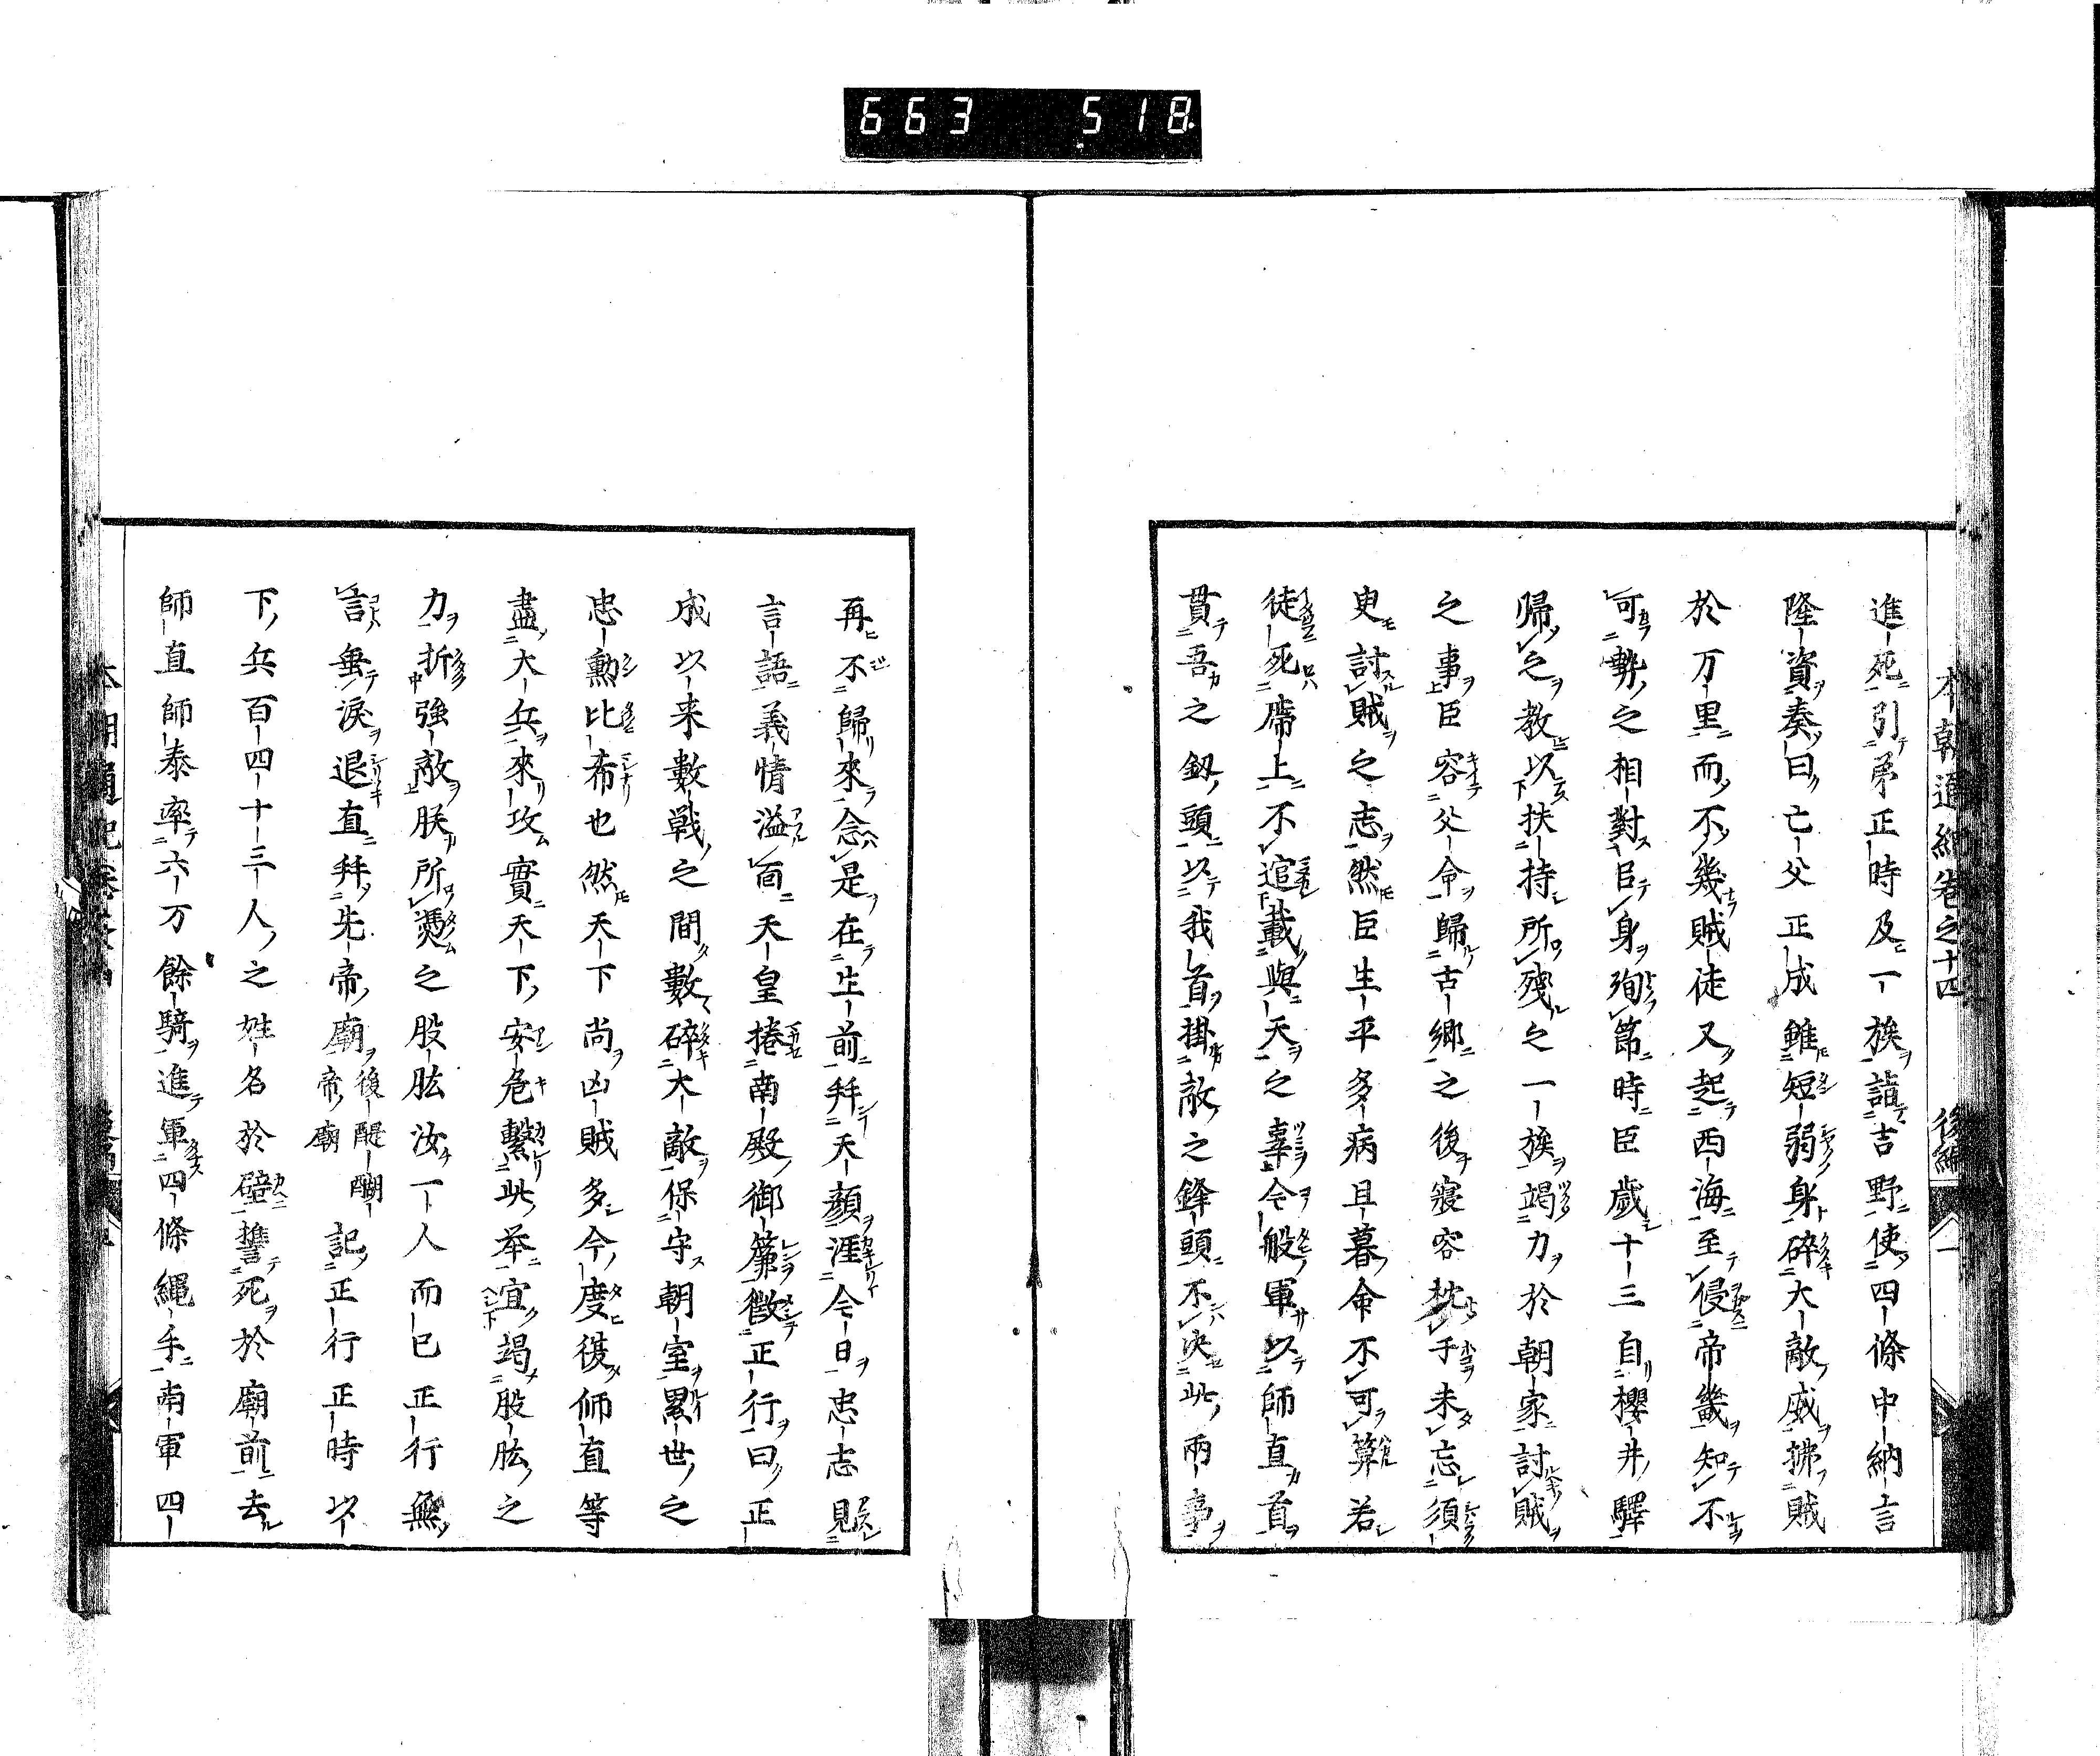 663 518
本朝通紀卷之十四 後編
進死引弟正時及一族詣吉野使四條中納言
隆資奏曰亡父正成雖短弱身碎大敵威拂賊
於万里而不幾賊徒又起西海至侵帝畿知不
可勢之相對臣身殉節時臣歲十三自櫻井驛
歸之教以扶持所殘之一族竭力於朝家討賊
之事臣容父命歸古鄉之後寢容枕手未忘須
臾討賊之志然臣生平多病且暮命不可算若
徒死席上不逭戴與天之辜令般軍以師直首
貫吾之釼頭以我首掛敵之鋒頭不决此兩事
再不歸來念是在生前拜天顏涯今日忠志見
言語義情溢面天皇捲南殿御簾徵正行曰正
成以来數戰之間數碎大敵保守朝室累世之
忠勲比希也然天下尚凶賊多今度復師直等
盡大兵來攻實天下安危繫此举宜竭股肱之
力折強敵朕所憑之股肱汝一人而已正行無
言垂淚退直拜先帝廟後醍醐帝廟記正行正時以
下兵百四十三人之姓名於壁誓死於廟前去
師直師泰率六万餘騎進軍四條繩手南軍四